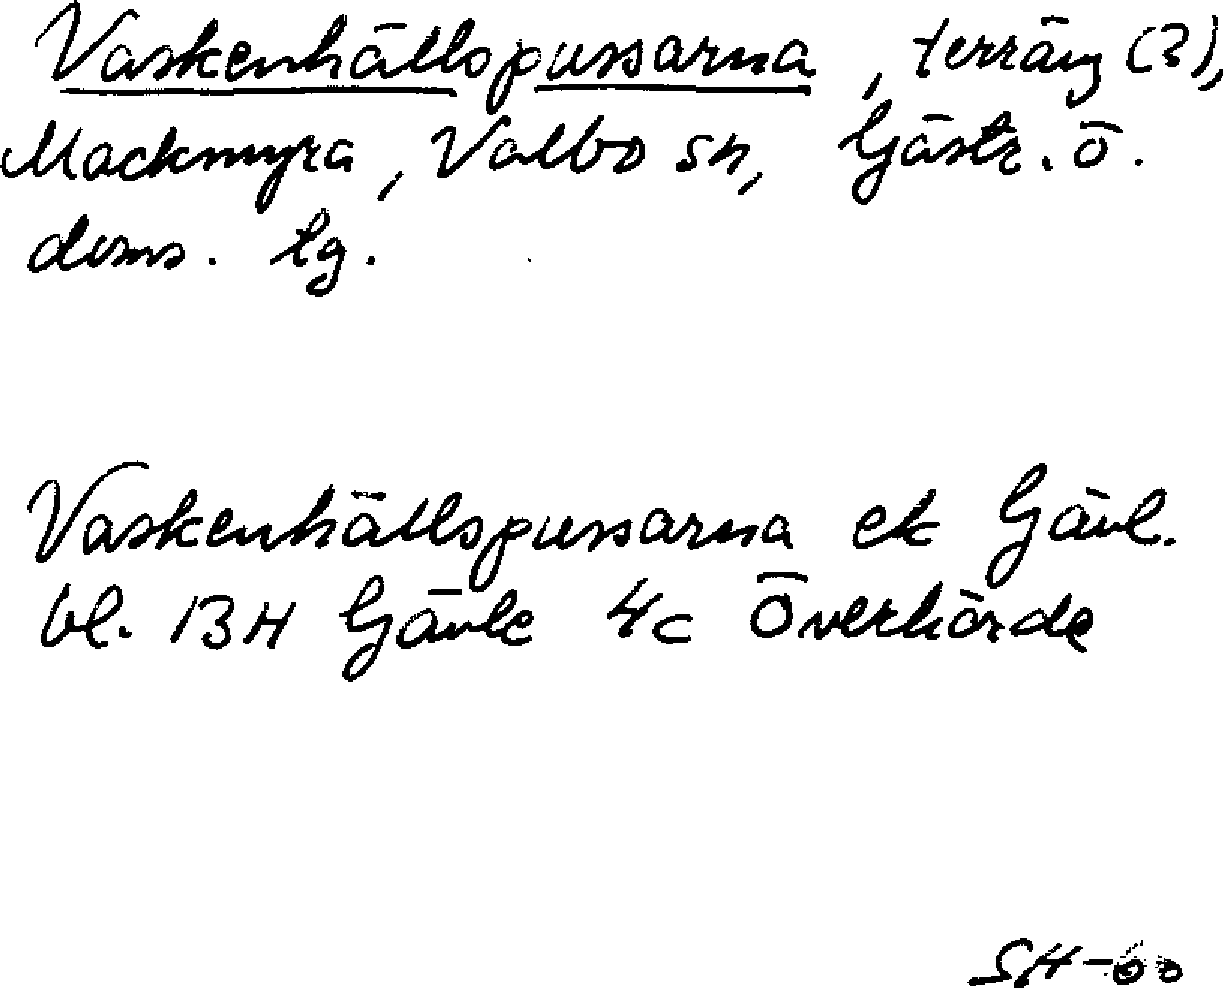 Vaskenhällspussarna, terräng (3),
Mackmyra, Valbo sn, Gästr. ö.
doms. lg.
Vaskenhällspussarna ek Gävl.
bl. 13H Gävle 4c Överhärde
SH-60